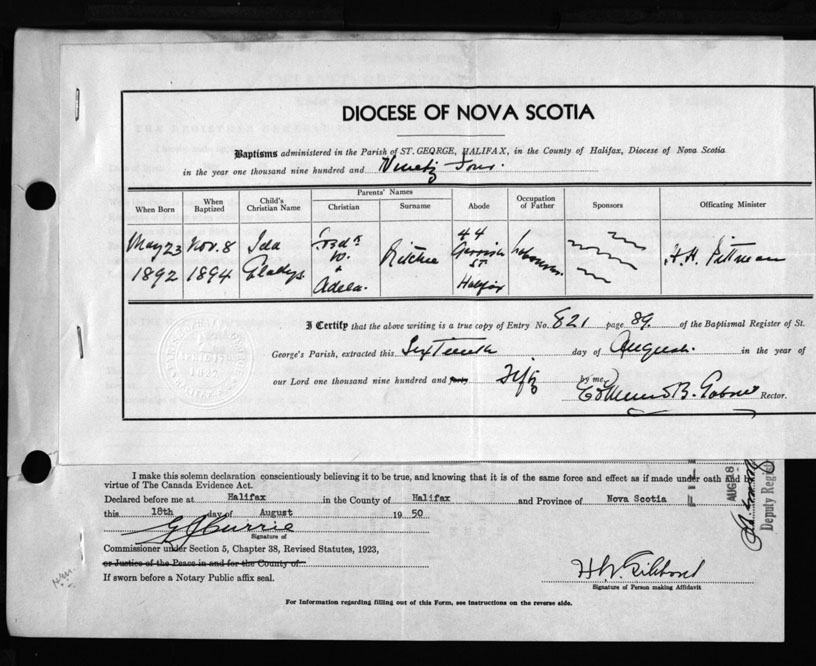 DIOCESE OF NOVA SCOTIA
Baptisms administered in the Parish of ST. GEORGE, HALIFAX, in the County of Halifax, Diocese of Nova Scotia
in the year one thousand nine hundred and Ninety Four.
Parents' Names
When Born When Baptized Child's Christian Name Christian Surname Abode Occupation of Father Sponsors Officating Minister
May 23 Nov. 8 Ida Ritchie 44 H. H. Pittman
1892 1894 Gladys W. & Adela. Gerrish St. Halifax
I Certify that the above writing is a true copy of Entry No. 821 page 89. of the Baptismal Register of St.
George's Parish, extracted this Sixteenth day of August. in the year of
our Lord one thousand nine hundred and forty Fifty by me,
Rector.
I make this solemn declaration conscientiously believing it to be true, and knowing that it is of the same force and effect as if made under oath and by
virtue of The Canada Evidence Act.
Declared before me at Halifax in the County of Halifax and Province of Nova Scotia
this 18th day of August 19 50
G J Currie
Signature of
Commissioner under Section 5, Chapter 38, Revised Statutes, 1923,
or Justice of the Peace in and for the County of
If sworn before a Notary Public affix seal.
Signature of Person making Affidavit
For Information regarding filling out of this Form, see instructions on the reverse side.
AUG 18
Deputy Regist